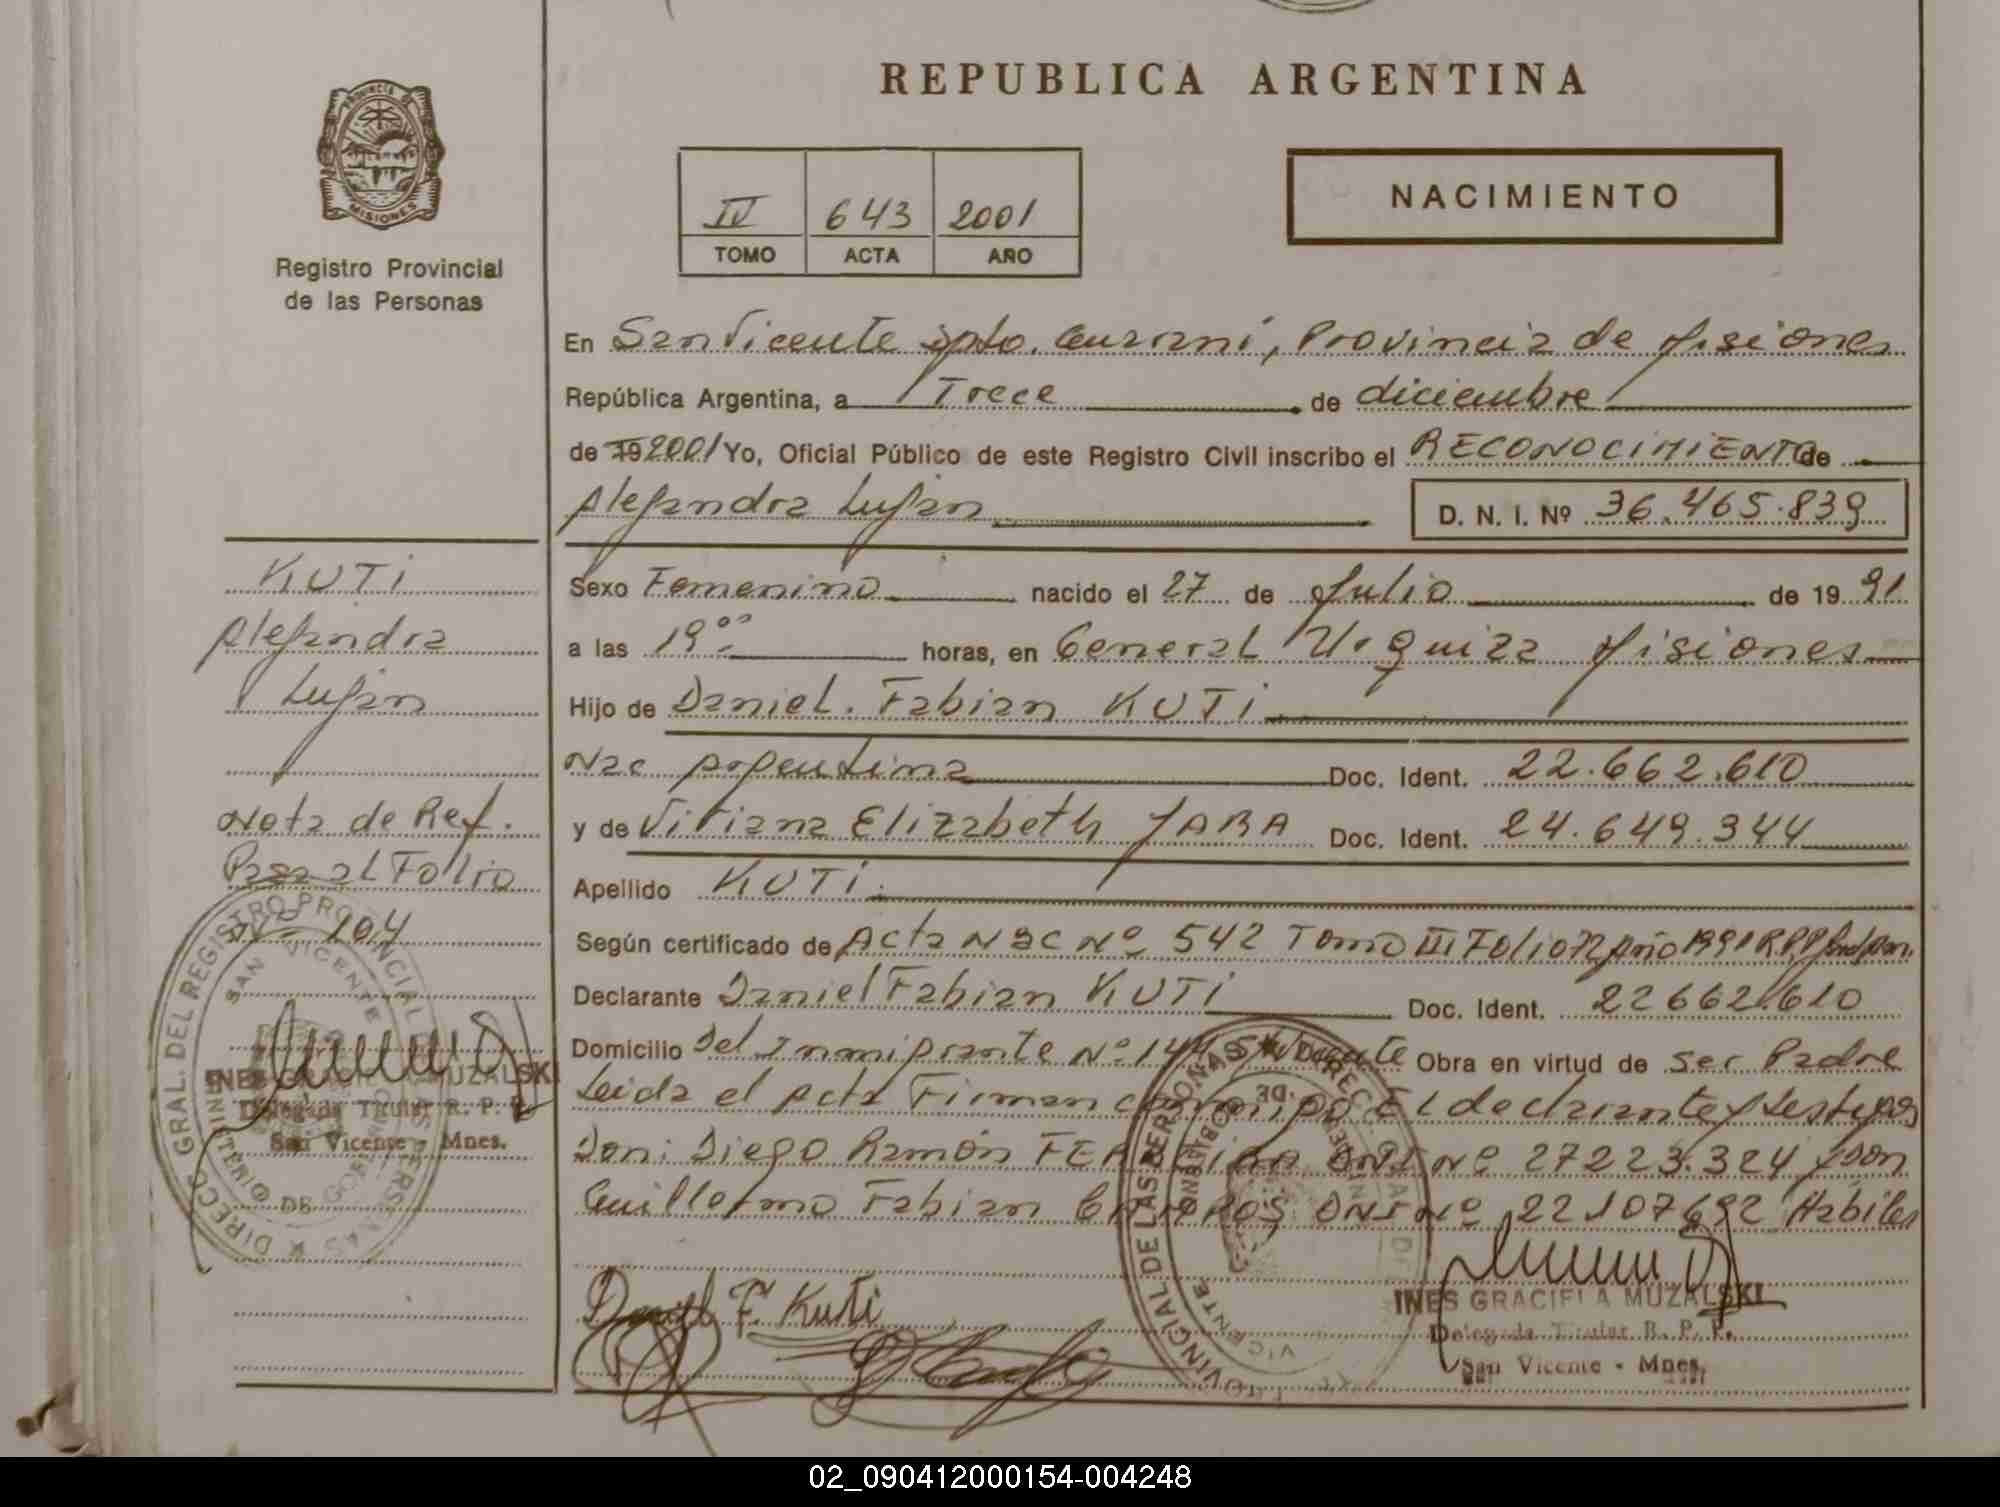 REPUBLICA ARGENTINA
PROVINCIA DE
MISIONES
Registro Provincial
de las Personas
IV 643 2001
TOMO ACTA AÑO
NACIMIENTO
En San Vicente Dpto. Guaraní, Provincia de Misiones
República Argentina, a Trece de diciembre
de 19 2001 Yo, Oficial Público de este Registro Civil inscribo el RECONOCIMIENTO de
Alejandra Luján D. N. I. Nº 36.465.839
Sexo Femenino nacido el 27 de Julio de 19 91
a las 19⁰⁰ horas, en General Urquiza Misiones
Hijo de Daniel Fabian KUTI
Nac Argentina Doc. Ident. 22.662.610
y de Viviana Elizabeth JARA Doc. Ident. 24.649.344
Apellido KUTI
Según certificado de Acta Nac Nº 542 Tomo III Folio 72 Año 1991 R.P.P.
Declarante Daniel Fabian KUTI Doc. Ident. 22662.610
Domicilio Del Inmigrante Nº S/Vicente Obra en virtud de ser Padre
Leida el Acta Firman conmigo El declarante y testigos
Don: Diego Ramón DNI Nº 27223.324 y Don
Guillermo Fabian DNI Nº 22107692 Habiles
Daniel F. Kuti
INES GRACIELA MUZALSKI
Delegada Titular R. P. P.
San Vicente - Mnes.
KUTI
Alejandra
Luján
Nota de Ref.
Pasa al Folio
Nº 104
INES GRACIELA MUZALSKI
Delegada Titular R. P. P.
San Vicente - Mnes.
02_090412000154-004248